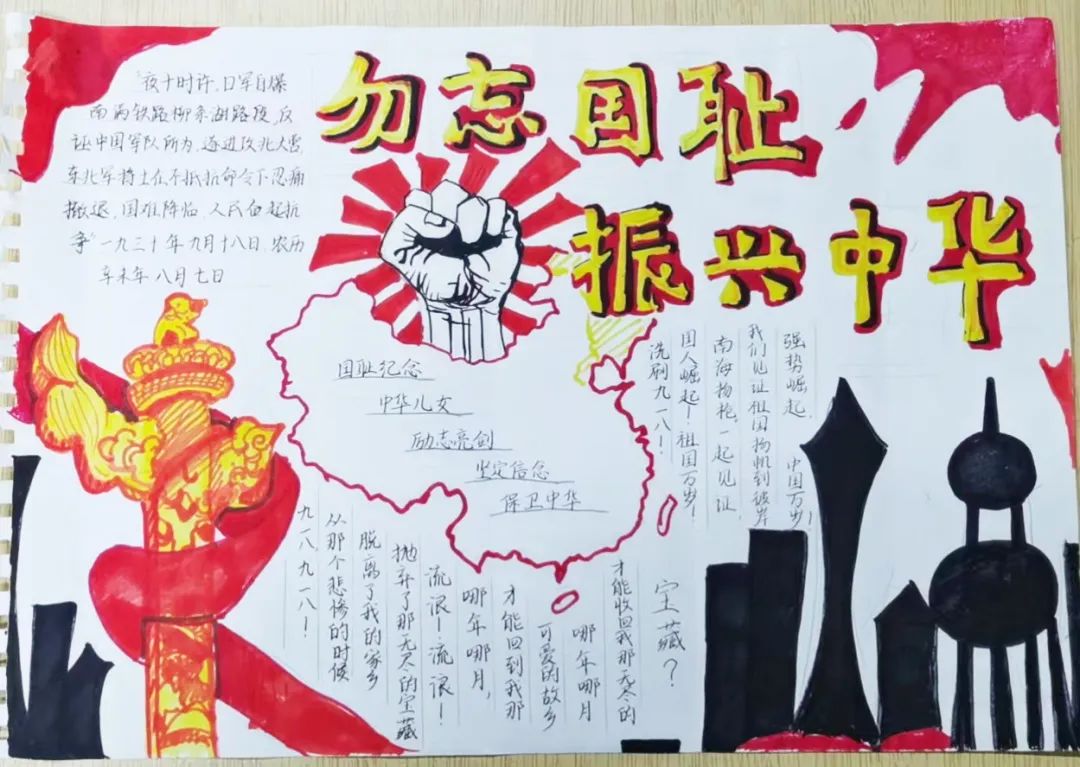 勿忘国耻
振兴中华
"夜十时许,日军自爆
南满铁路柳条湖路段,反
证中国军队所为,遂进攻北大营,
东北军将士在不抵抗命令下忍痛
撤退,国难降临,人民奋起抗
争"一九三十年九月十八日,农历
辛未年八月七日
国耻纪念
中华儿女
励志亮剑
坚定信念
保卫中华
强势崛起, 中国万岁!
我们见证祖国扬帆到彼岸
南海 一起见证,
国人崛起!祖国万岁!
洗刷九一八!
九一八,九一八!
从那个悲惨的时候
脱离了我的家乡
抛弃了那无尽的宝藏
流浪!流浪!
哪年哪月,
才能回到我那
可爱的故乡
哪年哪月
才能收回我那无尽的
宝藏?